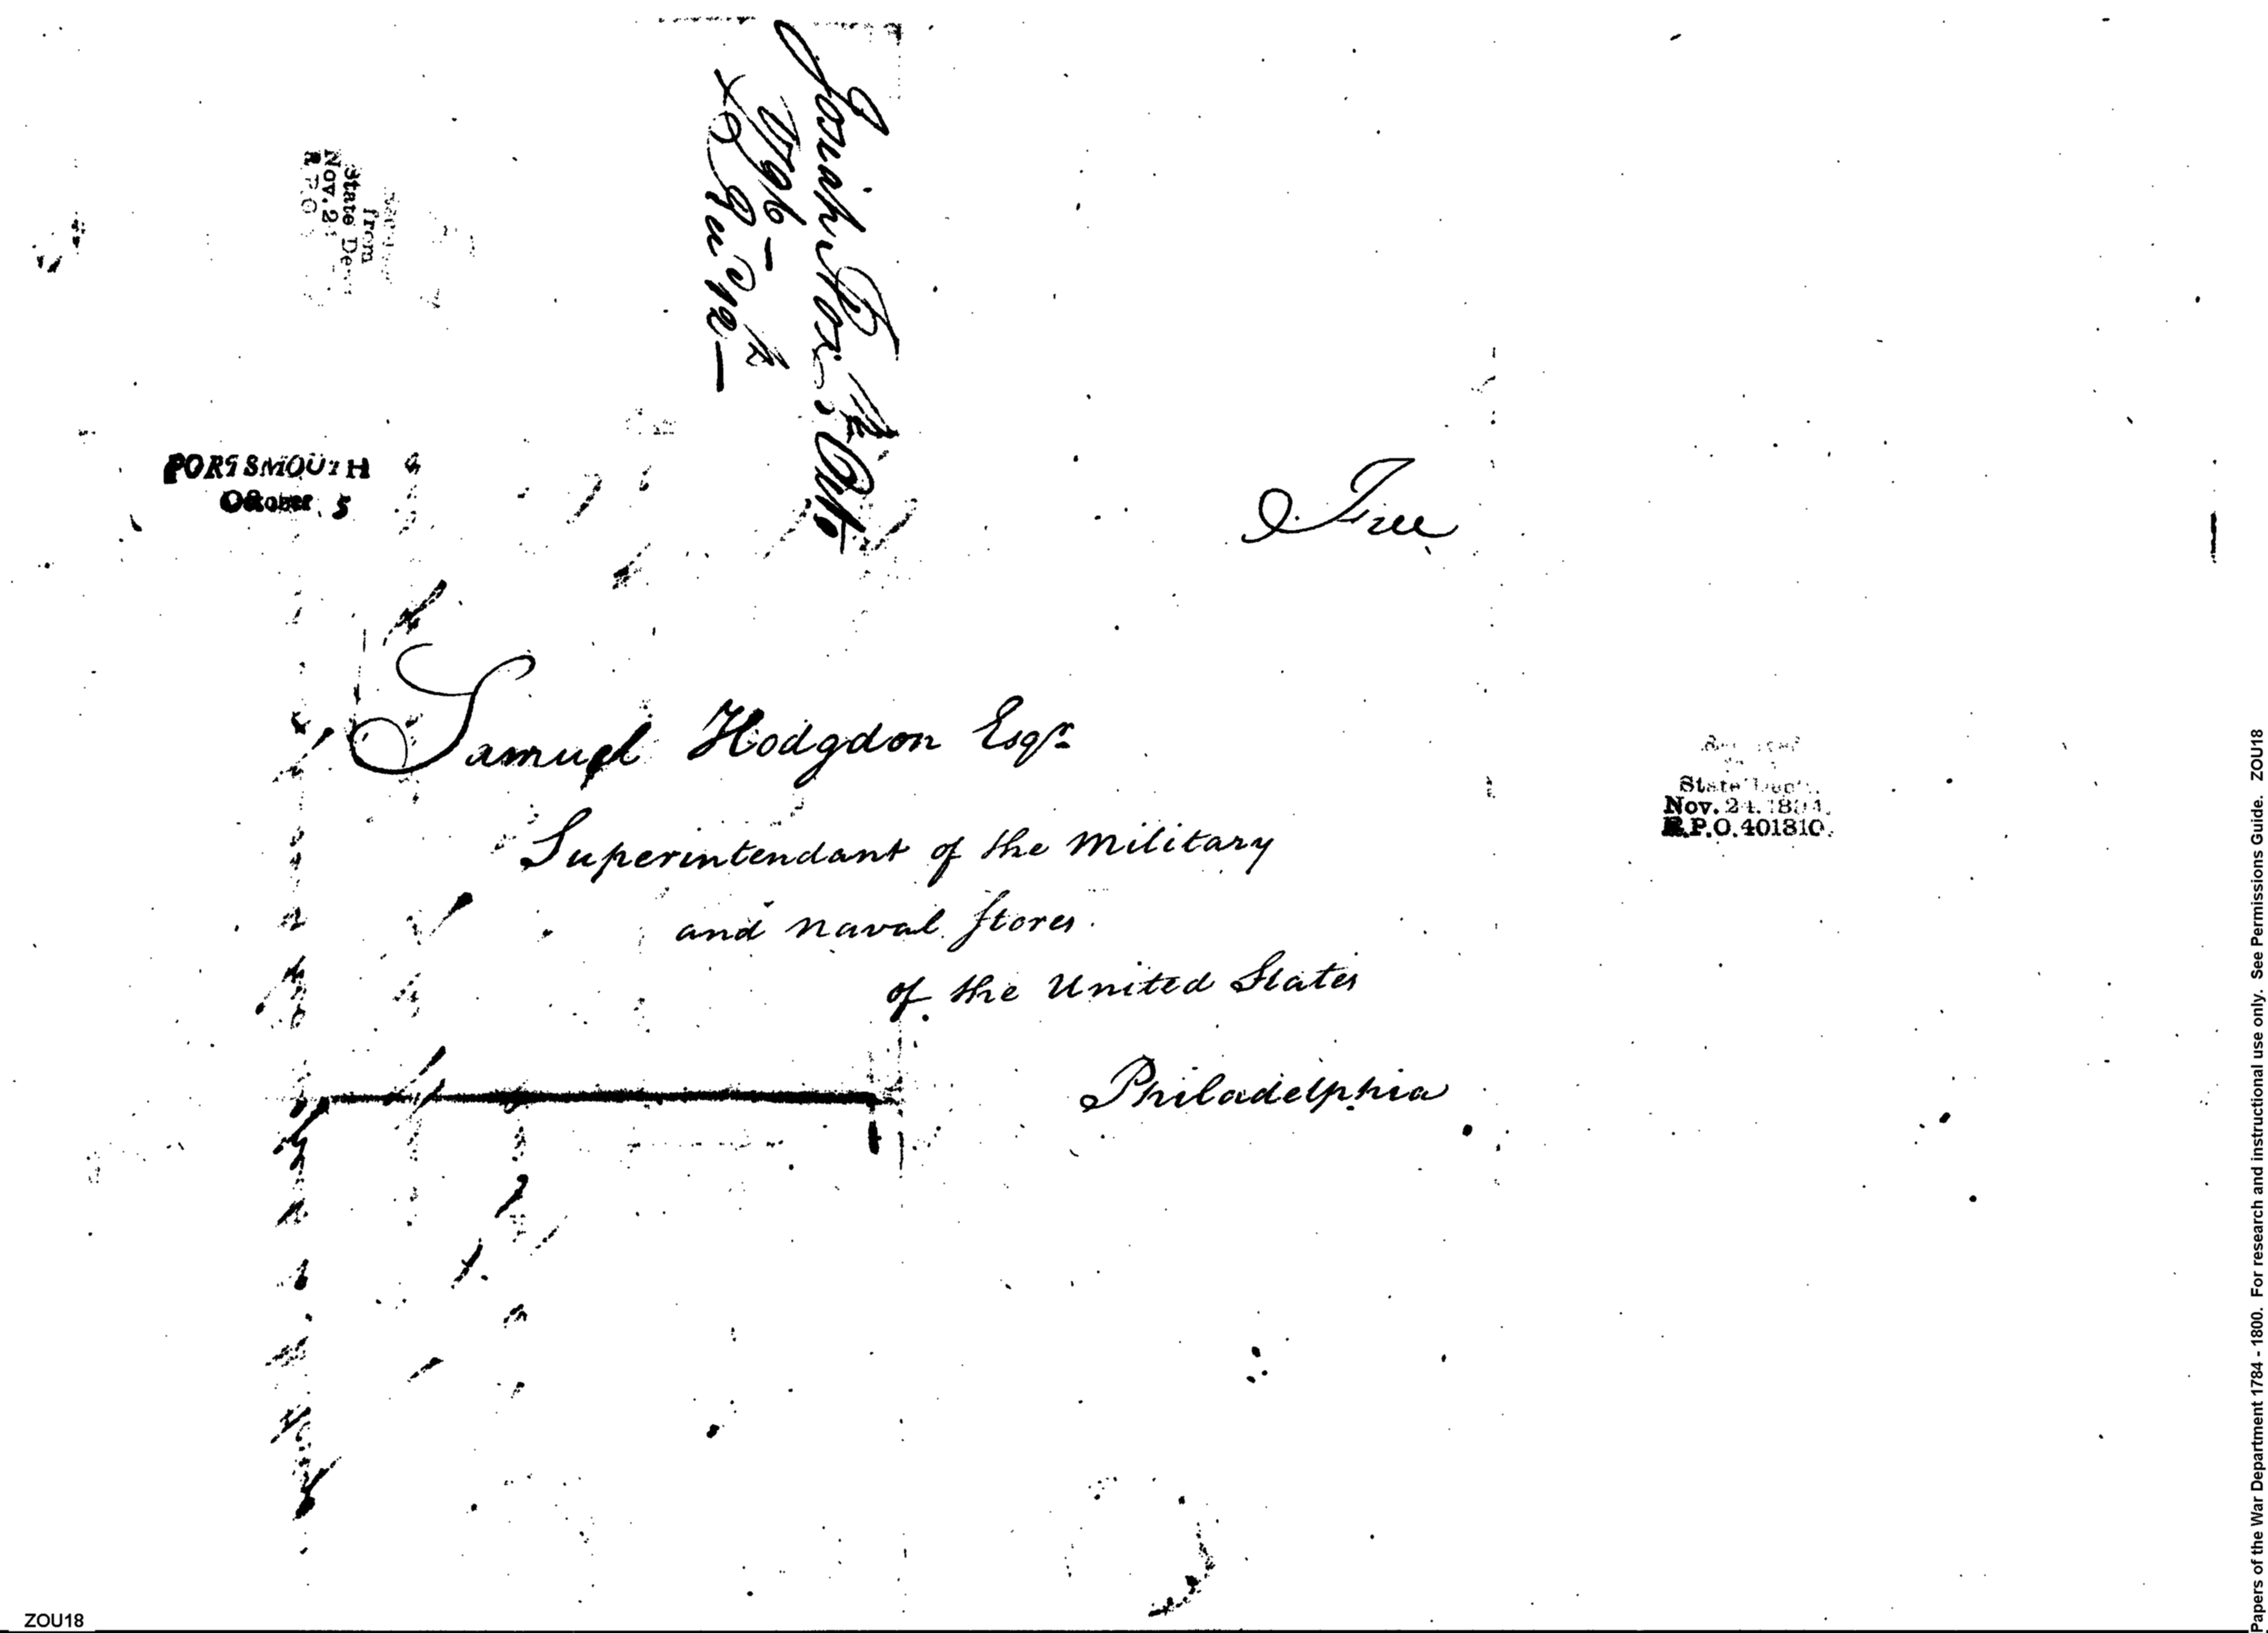 Josiah Fox 4th Octo
1796 —
from
State Dep
Nov. 2
R.P.O
PORTSMOUTH
October 5
Free
Samuel Hodgdon Esqr
Superintendant of the Military
and Naval Stores
of the United States
Philadelphia
State Dept.
Nov. 24. 1894.
R.P.O. 401810.
ZOU18
Papers of the War Department 1784 - 1800. For research and instructional use only. See Permissions Guide. ZOU18